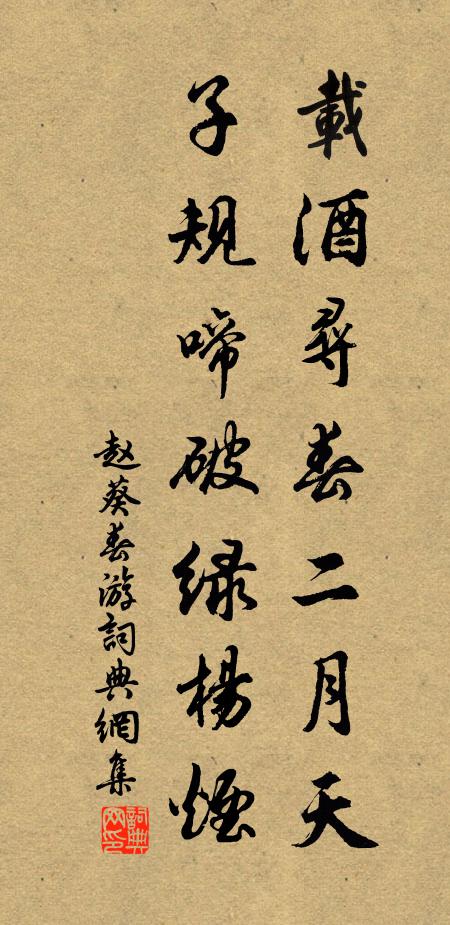 載酒尋春二月天
子規啼破緑楊煙
赵葵春游詞典網集
詞典网印